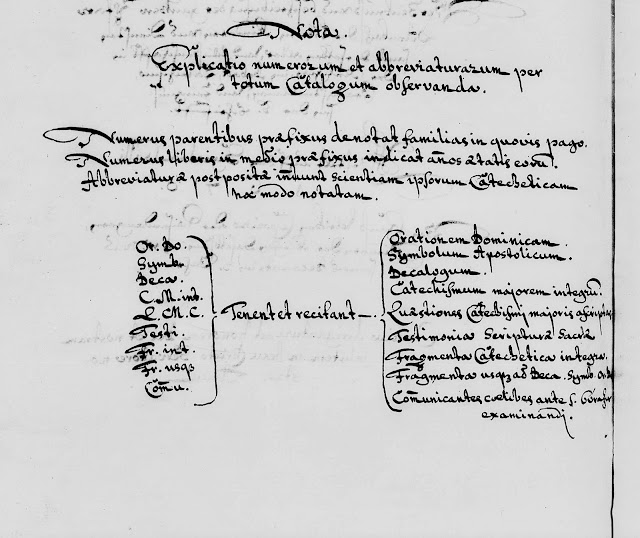 Nota.
Explicatio numerorum et abbreviaturarum per
totum Catalogum observanda.
Numerus parentibus præfixus denotat familias in quovis pago.
Numerus liberis in medio præfixus indicat an̄os ætatis eorū.
Abbreviaturæ postpositæ in̄uunt scientiam ipsorum Catecheticam
hoc modo notatam.
Or. Do.
Symb.
Deca.
C. M. int.
Q. M. C.
Testi.
Fr. int.
Fr. usqȝ
Com̄u.
Tenent et recitant —
Orationem Dominicam.
Symbolum Apostolicum.
Decalogum.
Catechismum majorem integrū.
Quæstiones Catechismi majoris
Testimonia Scripturæ Sacræ
Fragmenta Catechetica integra.
Fragmenta usqȝ ad Deca. Symb. Or.
Com̄unicantes cœlibes ante S.
examinandi.